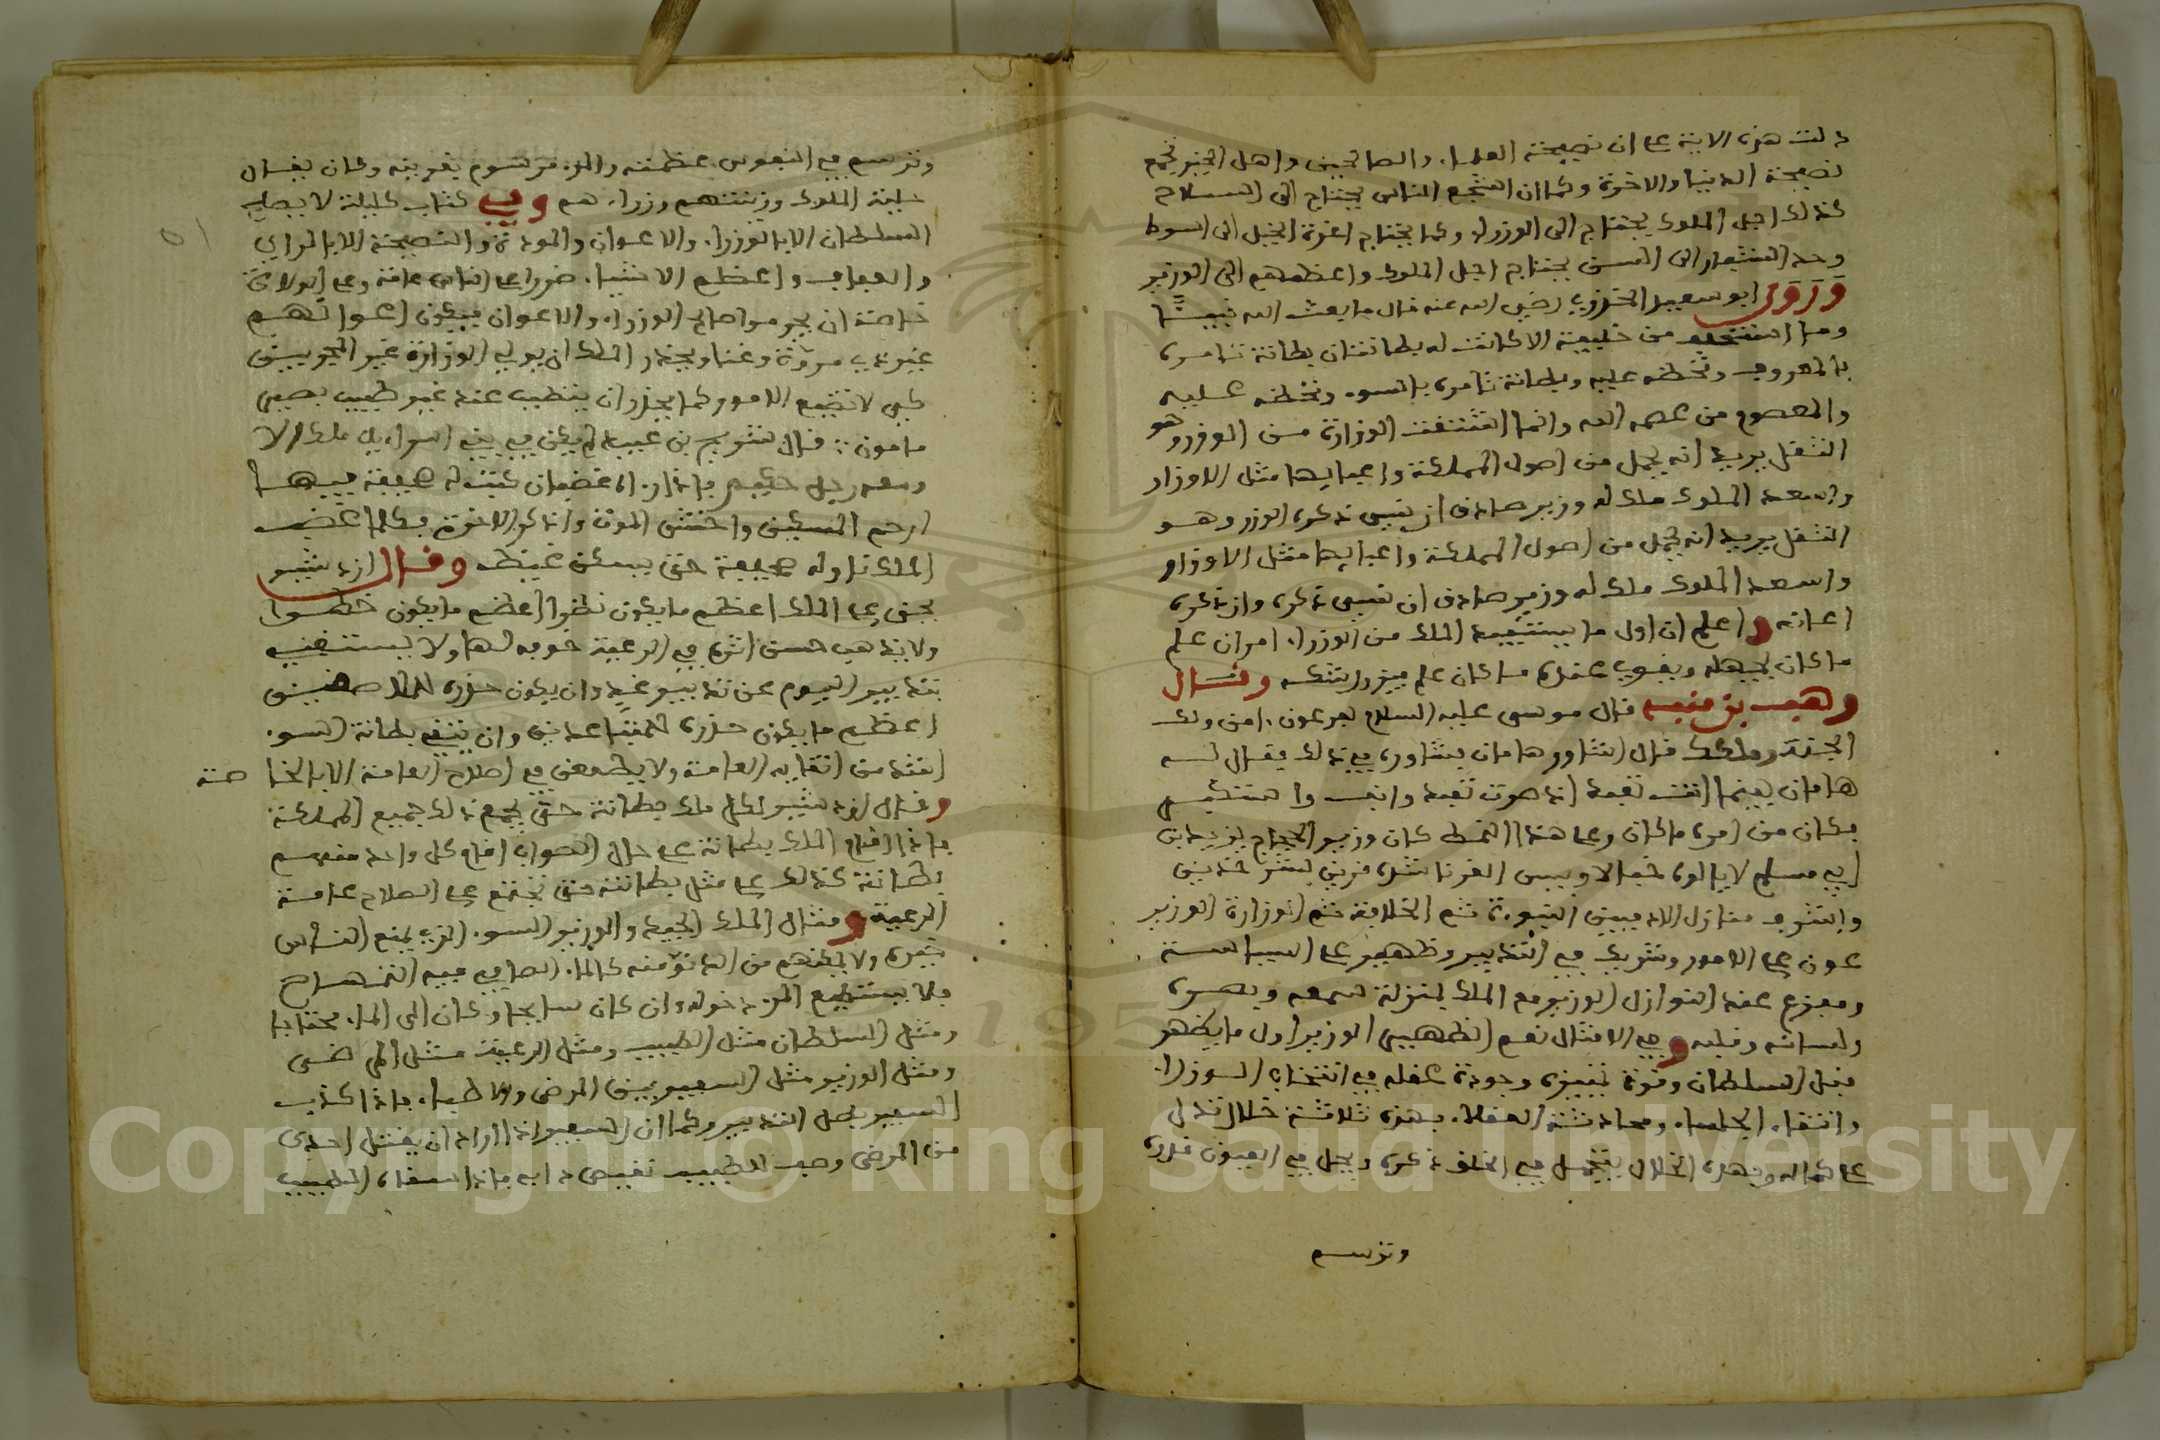 دلت هذه الاية على ان نصيحة العلماء والصالحين واهل الخير تجمع
نصيحة الدنيا والاخرة وكما ان اشجع الناس يحتاج الى السلاح
كذلك اجل الملوك يحتاج الى الوزراء وكما تحتاج اعزة الخيل الى السوط
وحد الشفار الى المسن يحتاج اجل الملوك واعظمهم الى الوزير
وروى ابو سعيد الخدري رضي الله عنه قال ما بعث الله نبيئا
وما استخلف من خليفة الا كانت له بطانتان بطانة تامره
بالمعروف وتحظه عليه وبطانة تامره بالسوء وتحظه عليه
والمعصوم من عصمه الله وانما اشتقت الوزارة من الوزر وهو
الثقل يريد انه يحمل من اصول المملكة واعبايها مثل الاوزار
واسعد الملوك ملك له وزير صادق ان نسي ذكره الوزر وهو
الثقل يريد انه يحمل من اصول المملكة واعبايها مثل الاوزار
واسعد الملوك ملك له وزير صادق ان نسي ذكره وان ذكره
اعانه واعلم ان اول ما يستفيد الملك من الوزراء امران علم
ما كان يجهله ويقوى عنده ما كان علم فيزول شكه وقال
وهب بن منبه قال موسى عليه السلام لفرعون امن ولك
الجنة وملكك قال اشاور هامان فشاوره في ذلك فقال له
هامان بينما انت تعبد اذ صرت تعبد وانف واستكبر
فكان من امره ما كان وعلى هذا النمط كان وزير الحجاج يزيد بن
ابي مسلم لا يالوه خبالا وبيس القرنا شره قرين لشر خدين
واشرف منازل الادميين النبوة ثم الخلافة ثم الوزارة الوزير
عون على الامور وشريك في التدبير وظهير على السياسة
ومفزع عند النوازل الوزير مع الملك بمنزلة سمعه وبصره
ولسانه وقلبه وفي الامثال نعم الظهير الوزير اول ما يظهر
نبل السلطان وقوة تمييزه وجودة عقله في انتخاب الوزراء
وانتقاء الجلساء ومحادثة العقلاء بهذه ثلاثة خلال تدل
على كماله وبهذه الخلال يتجمل في الخلق ذكره ويجل في العيون قدره
وترسم
وترسم في النفوس عظمته والمرء موسوم بقرينه وكان يقال
حلية الملوك وزينتهم وزراءهم وفي كتاب كليلة لا يصلح
السلطان الا بالوزراء والاعوان والمودة والنصيحة الا بالراي
والعفاف واعظم الاشياء ضررا على الناس عامة وعلى الولاة
خاصة ان يحرموا صالح الوزراء والاعوان فيكون اعوانهم
غير ذي مروة وغنا ويحذر الملك ان يولي الوزارة غير المجربين
كي لا تضيع الامور كما يحذر ان يتطبب عند غير طبيب بصير
مامون قال شريح بن عبيد لم يكن في بني اسراءيل ملك الا
ومعه رجل حكيم فاذا راه غضبان كتب له صحيفة فيها
ارحم المسكين واخش الموت واذكر الاخرة فكلما غضب
الملك ناوله صحيفة حتى يسكن غيظه وقال ازدشير
يحق على الملك اعظم ما يكون نظرا اعظم ما يكون خطرا
ولا يذهب حسن اثره في الرعية خوفه لها ولا يستغني
بتدبير اليوم عن تدبير غد وان يكون حذره للملاصقين
اعظم ما يكون حذره للمتباعدين وان يتقي بطانة السوء
اشد من اتقايه العامة ولا يطمعن في اصلاح العامة الا بالخا صة
وقال ازدشير لكل ملك بطانة حتى يجمع ذلك جميع المملكة
فاذا اقام الملك بطانة على حال الصواب اقام كل واحد منهم
بطانته كذلك على مثل بطانته حتى يجتمع على الصلاح عامة
الرعية ومثال الملك الجيد والوزير السوء الذي يمنع الناس
خيره ولا يمكنهم من الدنو منه كالماء الصافي فيه التمساح
فلا يستطيع المرء دخوله وان كان سابحا وكان الى الماء محتاجا
ومثل السلطان مثل الطبيب ومثل الرعية مثل المرضى
ومثل الوزير مثل السفير بين المرضى والاطباء فاذا كذب
السفير بطل التدبير وكما ان السفير اذا اراد ان يقتل احدى
من المرضى وصف للطبيب نقيض دايه فاذا سقاه الطبيب